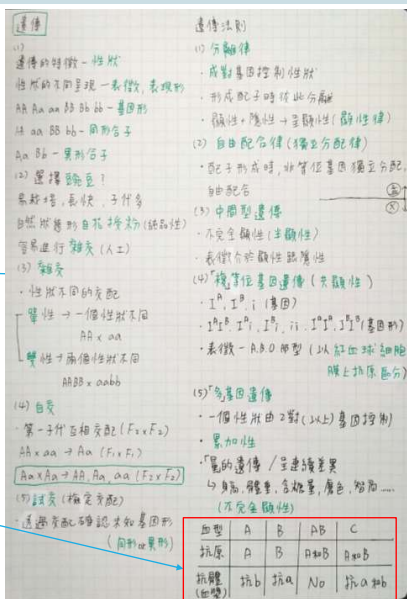 遺傳
(1)
遺傳的特徵-性狀
性狀的不同呈現-表徵,表現形
AA Aa aa BB Bb bb-基因形
AA aa BB bb-同形合子
Aa Bb-異形合子
(2) 選擇豌豆?
易栽培,長快,子代多
自然狀態形自花授粉(純品性)
容易進行雜交(人工)
(3) 雜交
·性狀不同的交配
單性→一個性狀不同
AA x aa
雙性→兩個性狀不同
AABB x aabb
(4) 自交
·第一子代互相交配(F2xF2)
AA x aa → Aa (F1xF1)
Aa x Aa → AA, Aa, aa (F2xF2)
(5) 試交(檢定交配)
·透過交配確認未知基因形
(同形or異形)
遺傳法則
(1) 分離律
·成對基因控制性狀
·形成配子時彼此分離
·顯性+隱性→呈顯性(顯性律)
(2) 自由配合律(獨立分配律)
·配子形成時,非等位基因獨立分配,
自由配合
(3) 中間型遺傳
·不完全顯性(半顯性)
·表徵介於顯性跟隱性
(4) 複等位基因遺傳(共顯性)
·Iᴬ, Iᴮ, i (基因)
·IᴬIᴮ, Iᴬi, Iᴮi, ii, IᴬIᴬ, IᴮIᴮ(基因形)
·表徵-A.B.O血型(以紅血球細胞
膜上抗原區分)
(5) 多基因遺傳
·一個性狀由2對(以上)基因控制
·累加性
·量的遺傳/呈連續差異
↳身高,體重,含糖量,膚色,智商.....
(不完全顯性)
血型 A B AB C
抗原 A B A和B A和B
抗體 抗b 抗a No 抗a和b
(血漿)